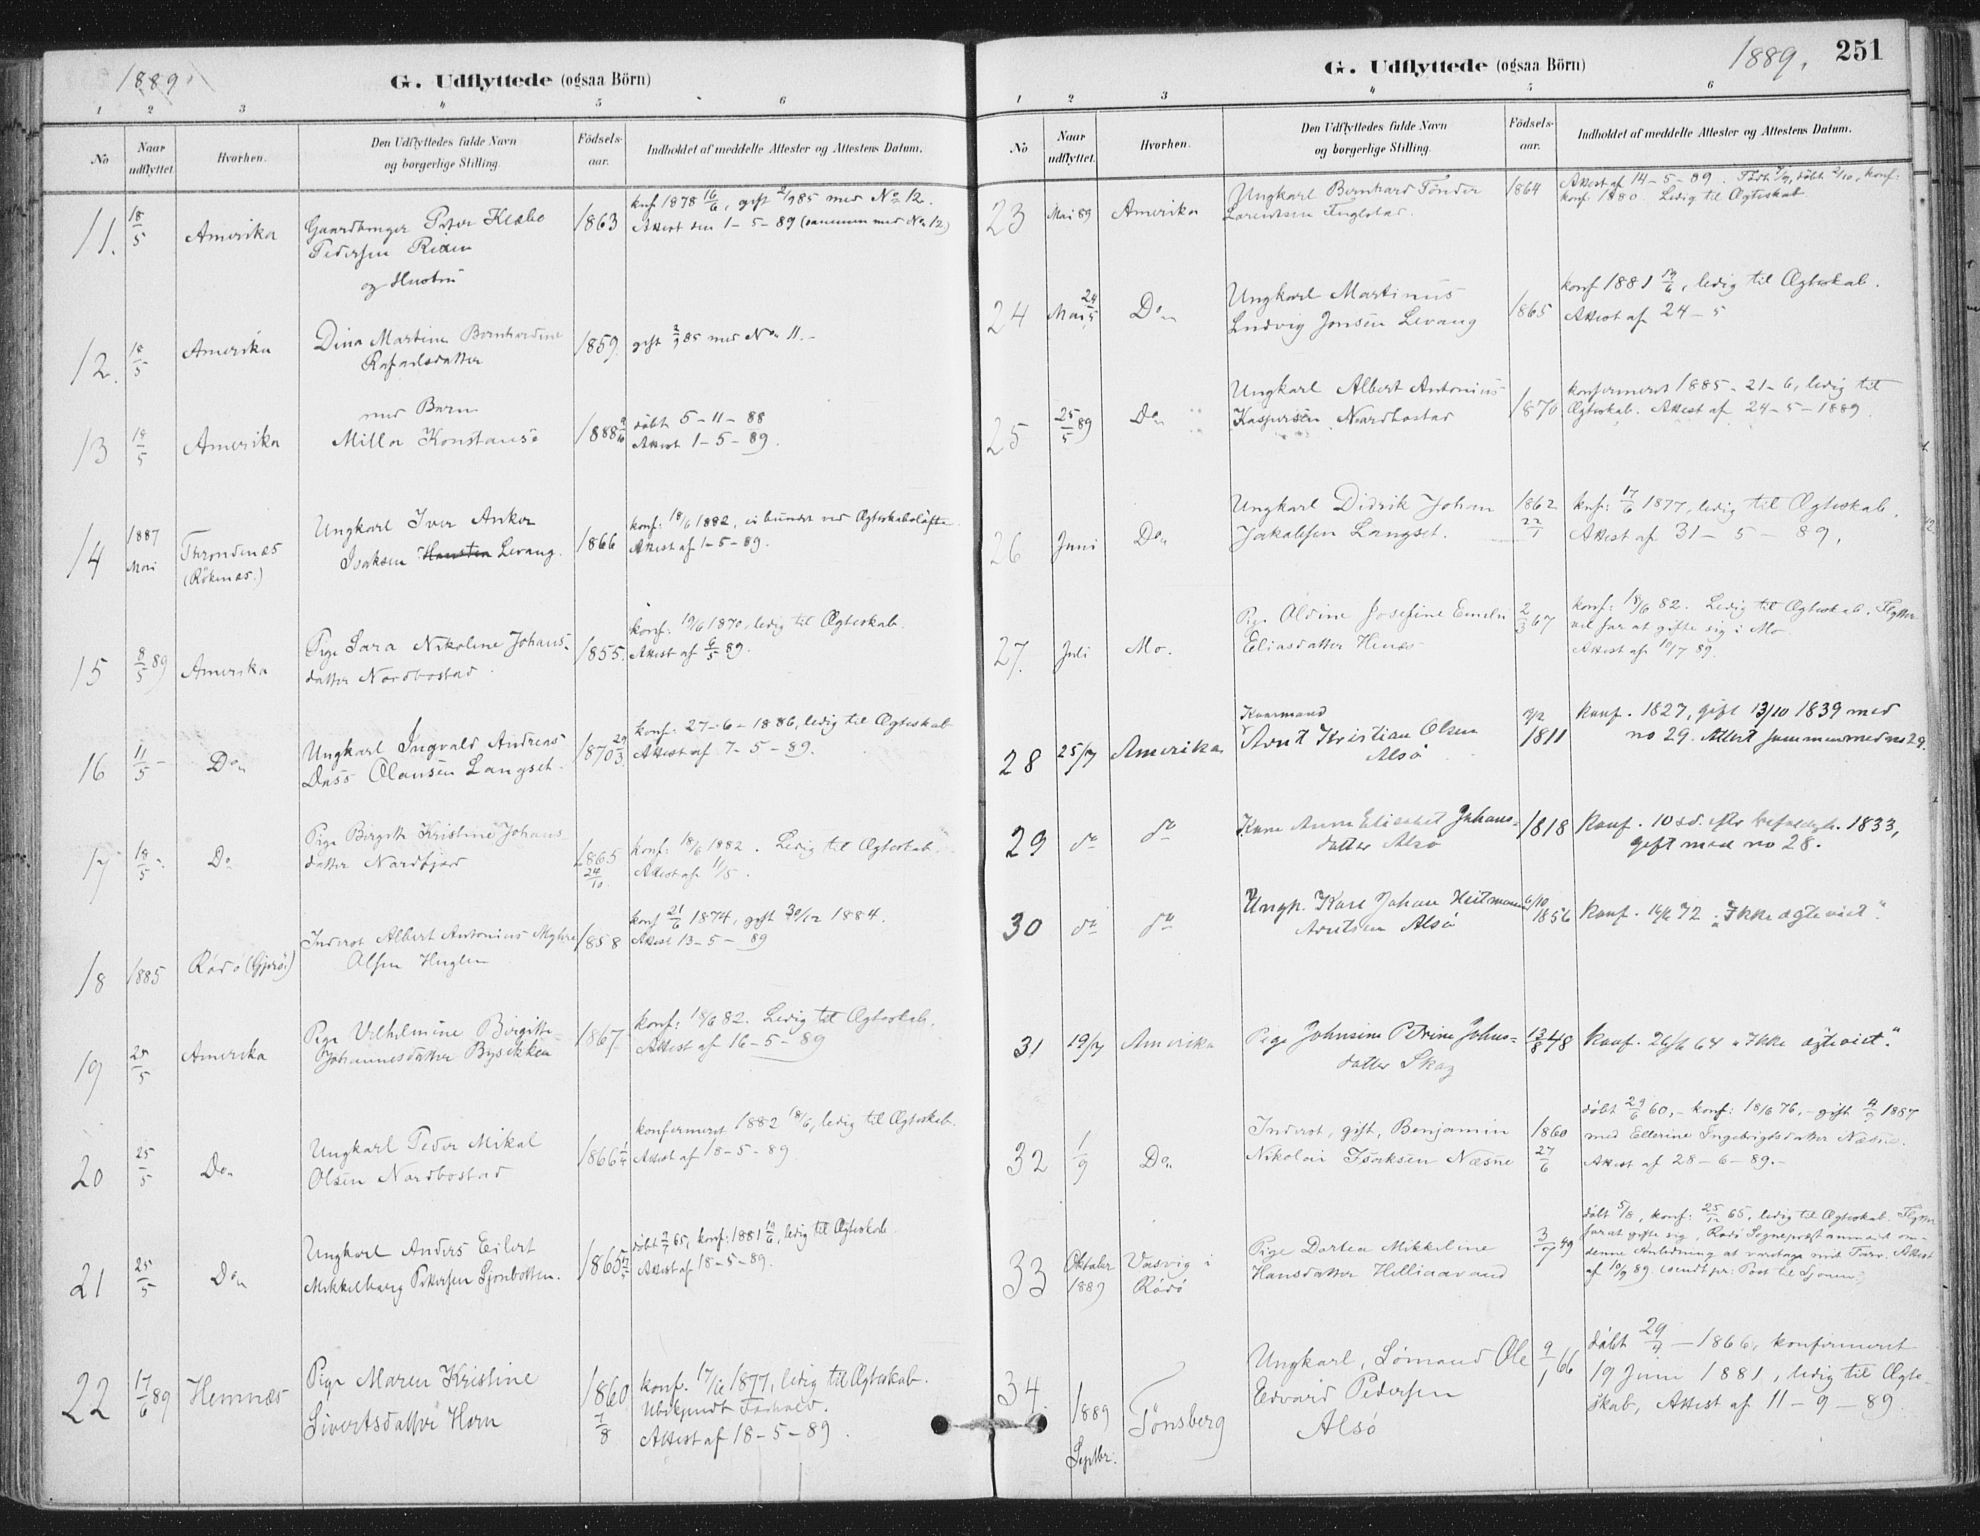 1889.
G. Udflyttede (ogsaa Börn)
1 2 3 4 5 6
No
Naar udflyttet
Hvorhen.
Den Udflyttedes fulde Navn og borgerlige Stilling.
Födsels-aar.
Indholdet af meddelte Attester og Attestens Datum.
11. 18/5 Amerika Gaardbruger Peter Klæbo 1863 konf 1878 16/6, gift 2/9 85 med No 12.
Pedersen og Hustru Attest den 1-5-89 (sammen med No 12)
12. 18/5 Amerika Dina Martine Bernhardine 1859. gift 2/9 85 med No 11.
Rafaelsdatter
med Barn
13 18/5 Amerika Milla Konstanse 1888 döbt 5-11-88
Attest 1-5-89.
14 1887 Mai Throndenæs Ungkarl Iver Anker 1866 konf: 18/6 1882, ei bundet ved Ægteskabslöfte
(Röknæs.) Isaksen Levang. Attest af 1-5-89.
15 8/5 89 Amerika Pige Sara Nikoline Johans- 1855. konf: 19/6 1870, ledig til Ægteskab.
datter Nordbostad Attest af 6/5 89.
16 11/5 Do Ungkarl Ingvald Andreas 1870 29/3 konf. 27-6-1886, ledig til Ægteskab
Dass Olausen Langset. Attest af 7-5-89.
17 18/5 Do Pige Birgitte Kristine Johans 1865 24/10 konf: 18/6 1882. Ledig til Ægteskab.
datter Nordfjord Attest af 11/5.
18 1885 Rödö (Gjerö) Inderst Albert Antonius Myhre 1858 konf 21/6 1874, gift 30/12 1884.
Olsen Huglen Attest 13-5-89
19 25/5 Amerika Pige Vilhelmine Birgitte 1867 konf: 18/6 82. Ledig til Ægteskab.
Johannesdatter Attest af 16-5-89
20 25/5 Do Ungkarl Peder Mikal 1866 1/4 konfirmeret 1882 18/6, ledig til Ægteskab.
Olsen Nordbostad Attest af 18-5-89
21 25/5 Do Ungkarl Anders Eilert 1865 döbt 2/7 65, konf: 1881 19/6, ledig til Ægteskab
Mikkelborg Petersen Sjonbotten. Attest af 18-5-89.
22 17/6 89 Hemnæs Pige Maren Kristine 1860 7/8 konf. 17/6 1877, ledig til Ægteskab.
Sivertsdatter Horn Ubekjendt Forhold.
Attest af 18-5-89.
G. Udflyttede (ogsaa Börn)
1889. 251
1 2 3 4 5 6
No
Naar udflyttet.
Hvorhen.
Den Udflyttedes fulde Navn og borgerlige Stilling.
Födsels-aar.
Indholdet af meddelte Attester og Attestens Datum.
23 Mai 89 Amerika Ungkarl Bernhard Tönder 1864 Attest af 14-5-89. döbt 2/10, konf:
Lorentsen Fuglstad. konf 1880. Ledig til Ægteskab
24 Mai 24/5 Do Ungkarl Martinus 1865 konf 1881 19/6, ledig til Ægteskab.
Ludvig Jonsen Levang Attest af 24-5
25 25/5 89 Do Ungkarl Albert Antonius 1870 konfirmeret 1885-21-6, ledig til
Kaspersen Nordbostad Ægteskab. Attest af 24-5-1889
26 Juni Do Ungkarl Didrik Johan 1862 22/1 konf: 17/6 1877, ledig til Ægteskab.
Jakobsen Langset. Attest af 31-5-89.
27. Juli Mo. Pige Aldine Josefine Emelie 2/3 67 konf: 18/6 82. Ledig til Ægteskab. Flytter
Eliasdatter Hinæs for at gifte sig i Mo.
Attest af 10/7 89.
28 25/7 Amerika Kaarmand 1811 Konf. 1827, gift 13/10 1839 med
Arnt Kristian Olsen no 29. Attest sammen med no 29.
Alsö
29 do do Kone Anne Elisabet Johans- 1818 Konf. 10 sd. 1833,
datter Alsö gift med no 28.
30 do do Ungk. Karl Johan Heitmann 6/10 1856 Konf. 16/6 72 „Ikke ægteviet“.
Arntsen Alsö
31 19/7 Amerika Pige Johnsine Petrine Johns- 13/8 48 Konf. 26/6 64 „Ikke ægteviet.“
datter Skog
32 1/9 Do Inderst, gift, Benjamin 1860 27/6 döbt 29/6 60,- konf: 18/6 76,- gift 4/9 1887
Nikolai Isaksen Næsne med Ellerine Ingebrigtsdatter Næsne.
Attest af 28-6-89.-
33 Oktober 1889 Vasvig i Rödö Pige Dortea Mikkeline 3/7 49 döbt 5/8, konf: 25/12 65, ledig til Ægteskab. Flytter
Hansdatter Helligaavand for at gifte sig, Rödö Sogneprest anmodet om
denne Anledning at varetage mit Tarv. Attest
af 10/9 89. (sendt pr: Post til Sjonen)
34. 1889 Septbr. Tönsberg Ungkarl, Sömand Ole 9/1 66 döbt 29/7-1866, konfirmeret
Edvard Pedersen 19 Juni 1881, ledig til Ægte-
Alsö skab, Attest af 11-9-89.